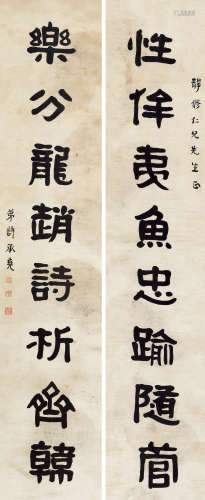 靜修仁兄先生正
性侔夷魚忠踰隨管
樂分龍趙詩析齊韓
弟許承堯